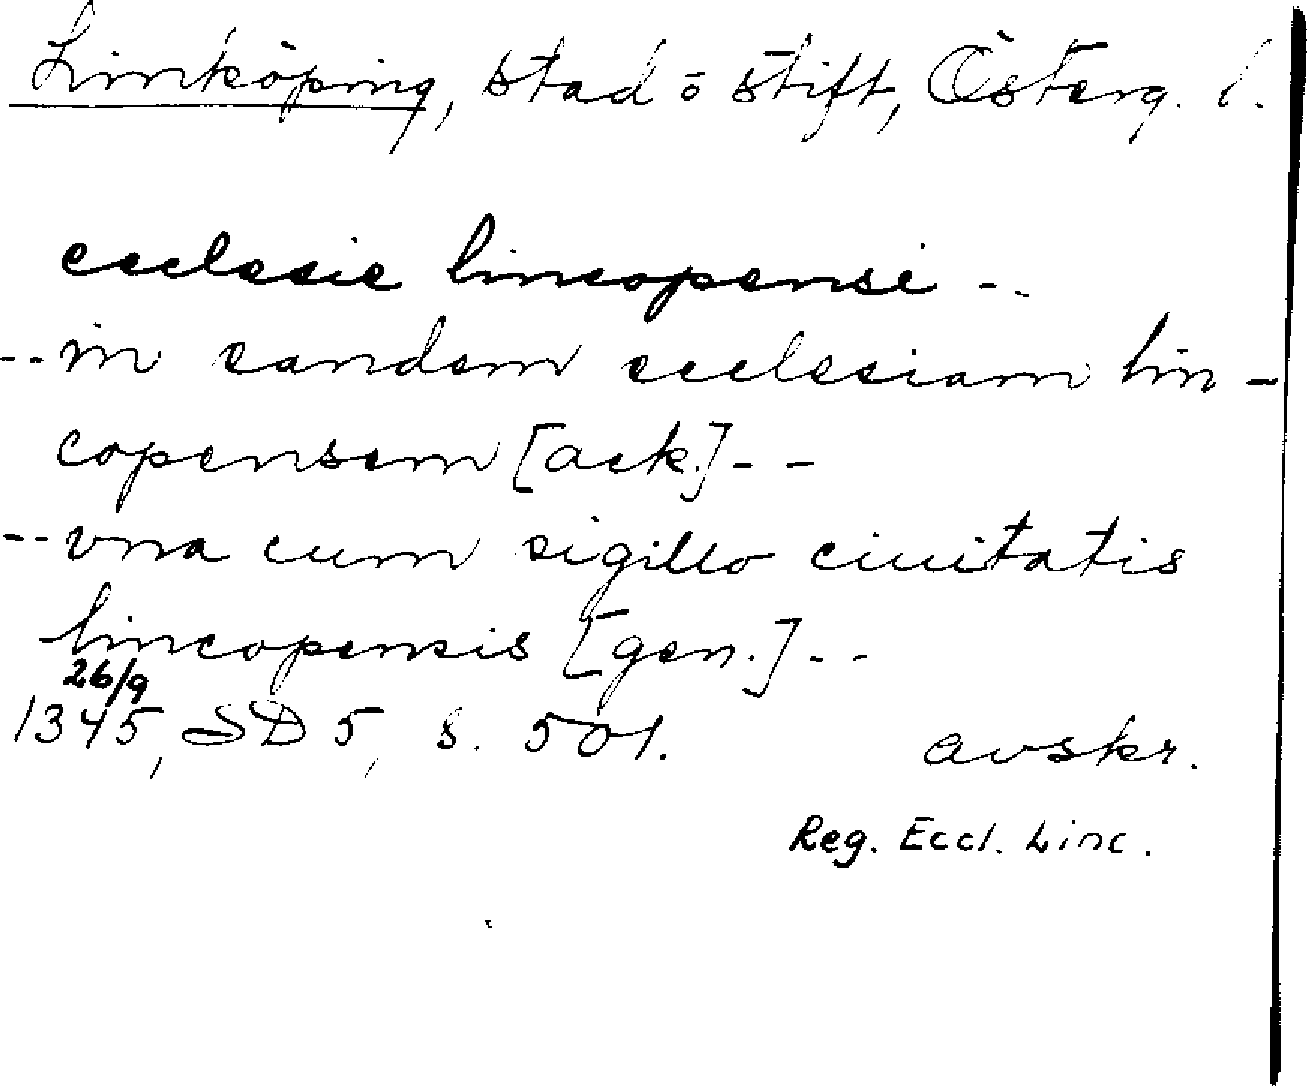 Linköping, stad o stift, Österg. l.
ecclesie lincopensi --
-- in eandem ecclesiam lin-
copensem [ack.] --
-- vna cum sigillo ciuitatis
lincopensis [gen.] --
26/9
1345, SD 5, s. 501. avskr.
Reg. Eccl. Linc.